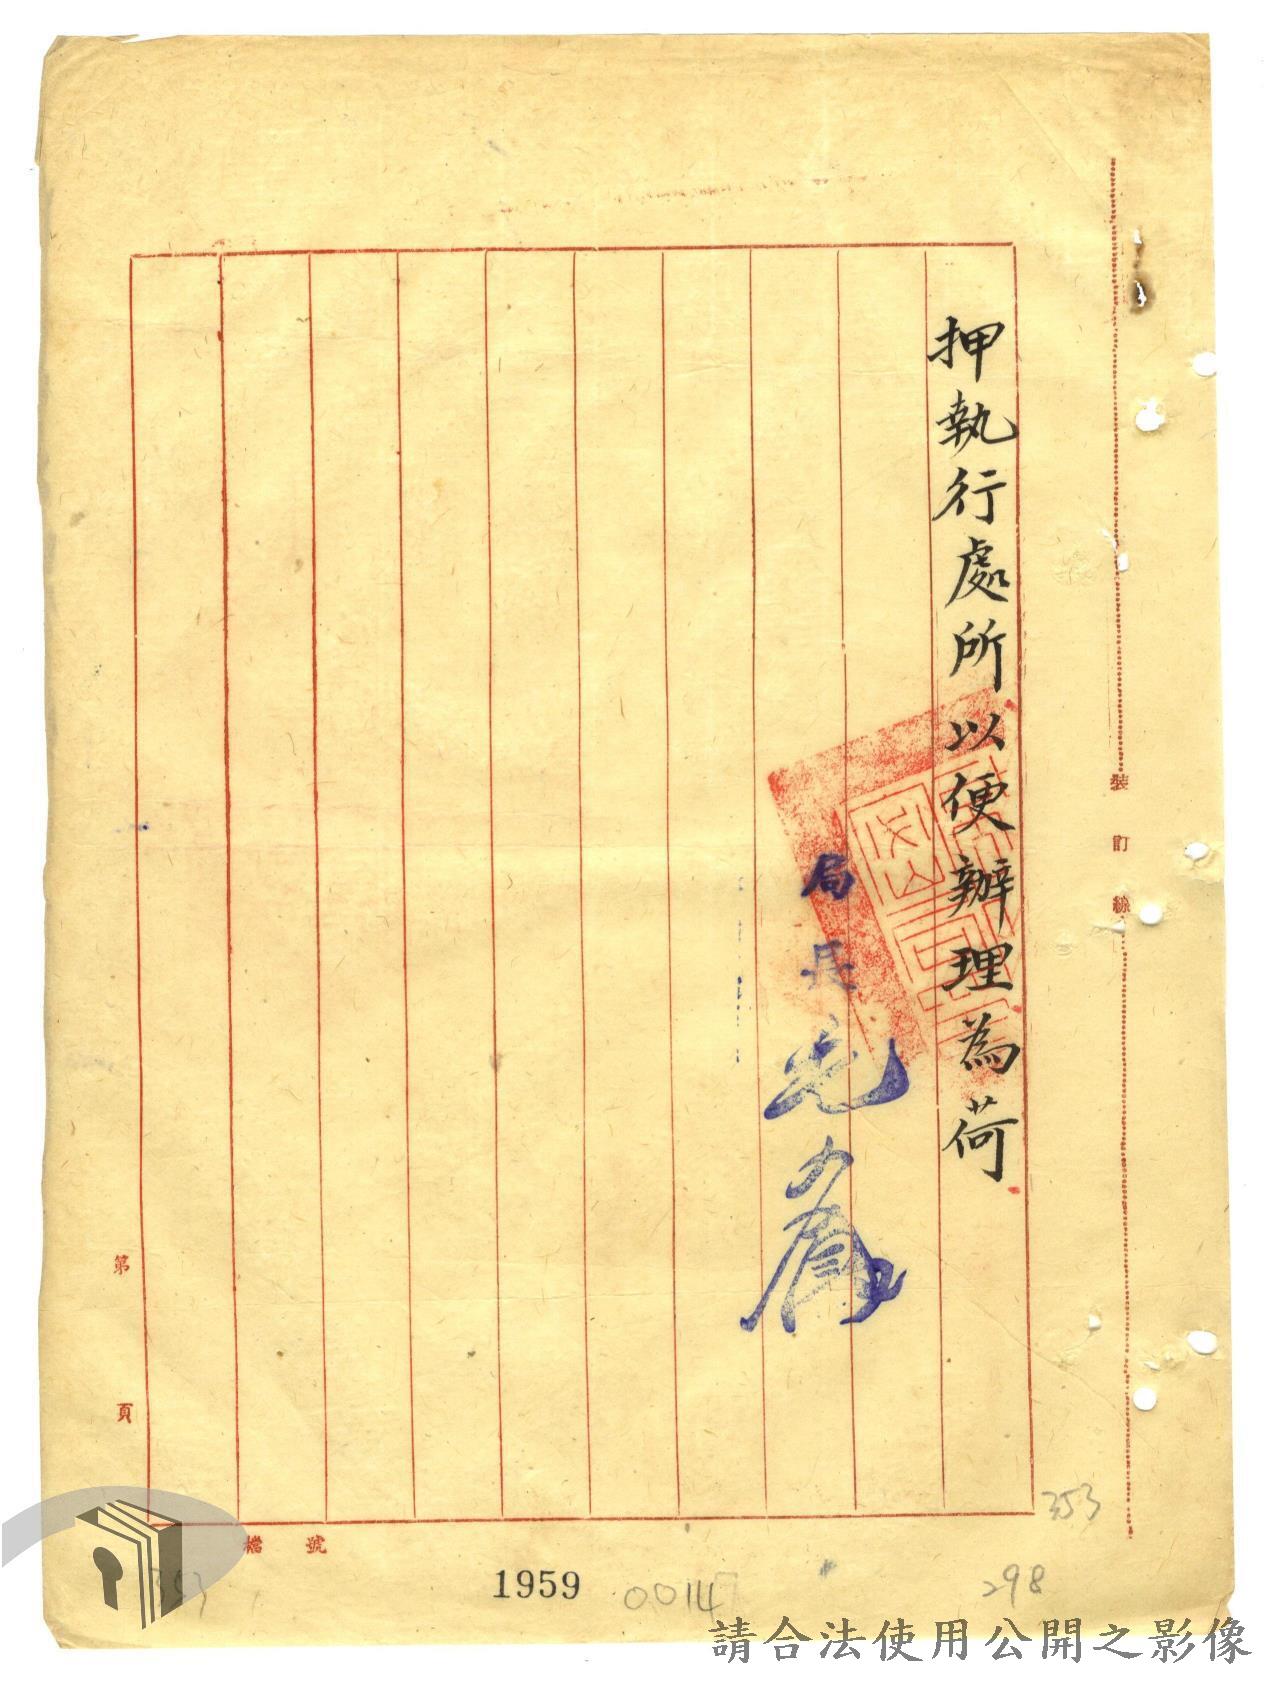 押執行處所以便辦理為荷
局長
裝訂線
第 頁
檔 號
1959
0014
353
298
353
請合法使用公開之影像